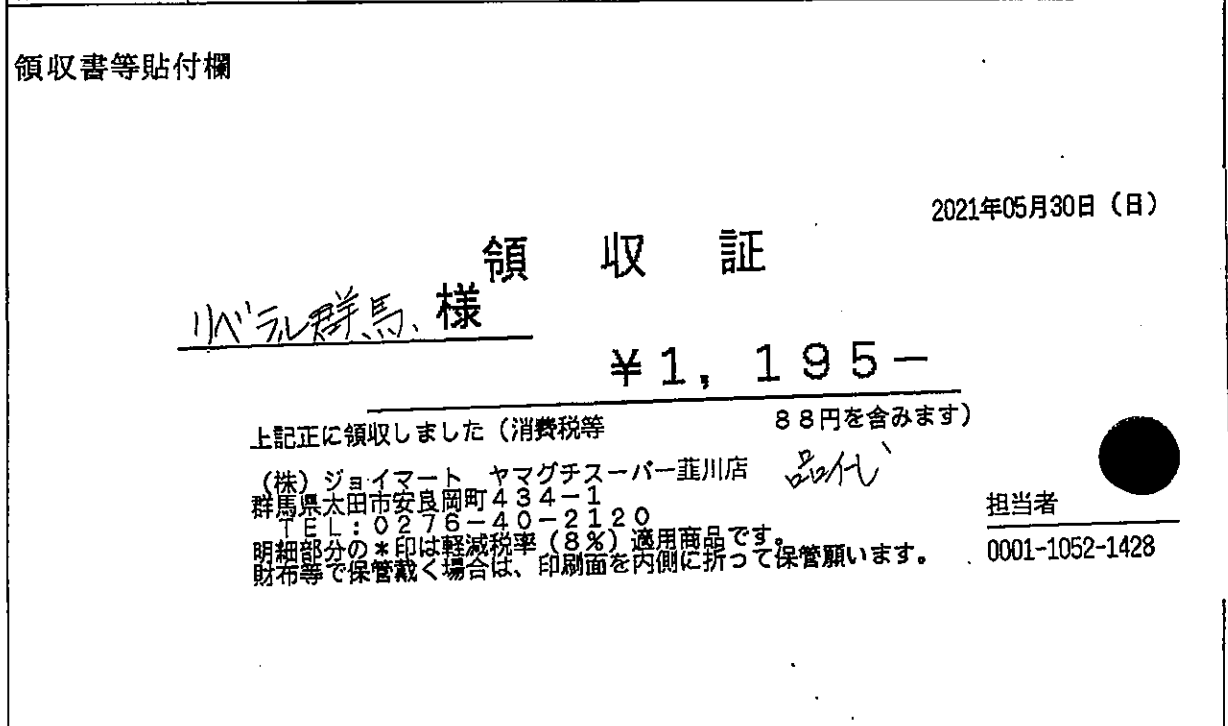 領収書等貼付欄
2021年05月30日（日）
領 収 証
リベラル群馬 様
￥１，１９５－
上記正に領収しました（消費税等 ８８円を含みます）
（株）ジョイマート ヤマグチスーパー韮川店 品代
群馬県太田市安良岡町４３４－１
ＴＥＬ：０２７６－４０－２１２０
明細部分の＊印は軽減税率（８％）適用商品です。
財布等で保管戴く場合は、印刷面を内側に折って保管願います。
担当者
0001-1052-1428